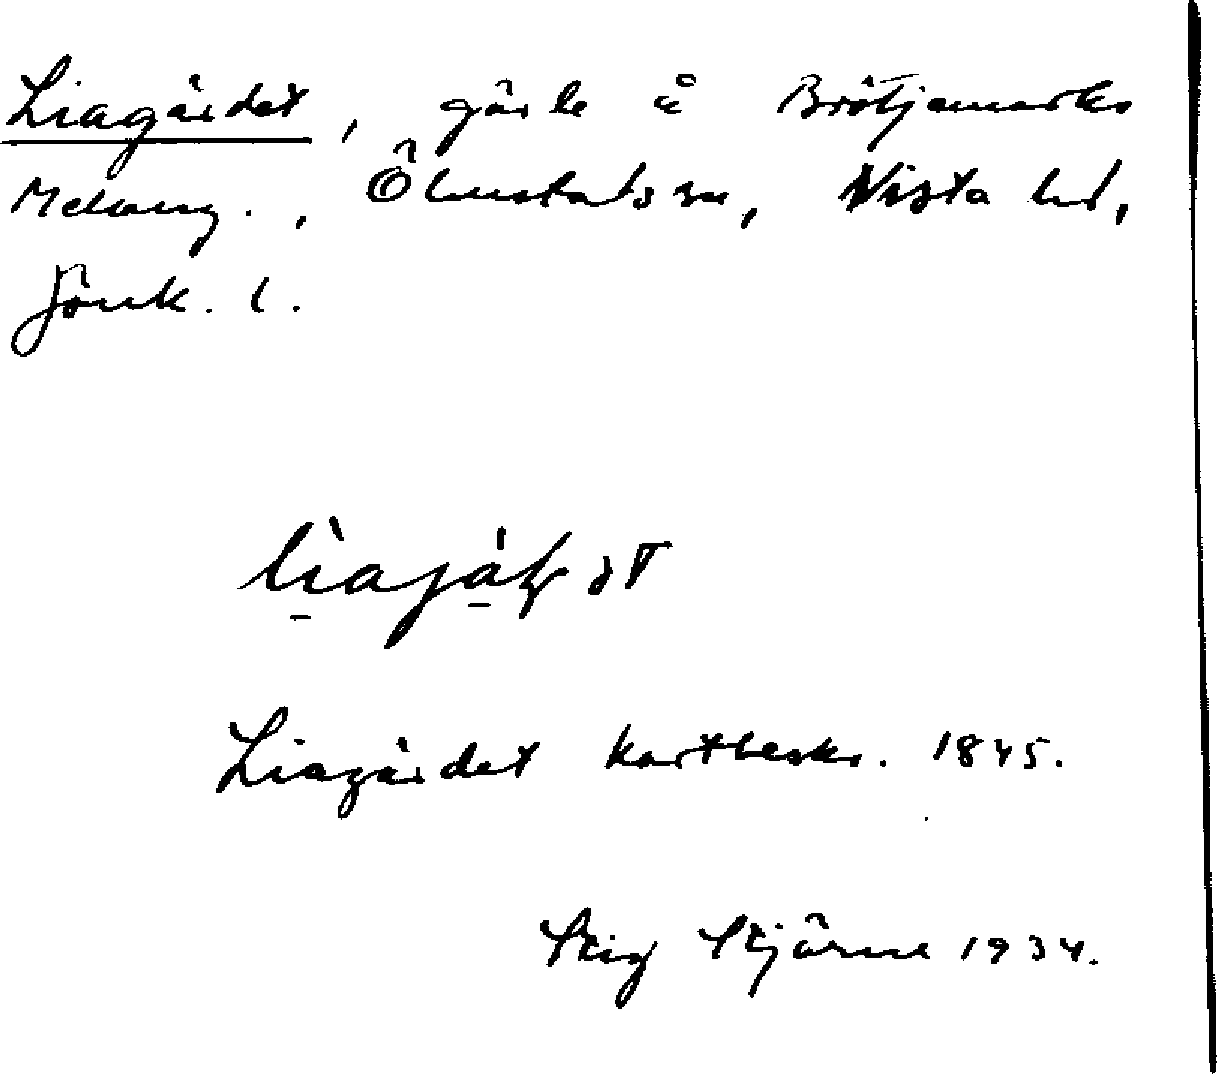 Liagärdet, gärde å Brötjemarks
Mellang., Ölmstads sn, Vista hd,
Jönk. l.
Liagärdet kartbeskr. 1845.
Stig Stjärne 1934.